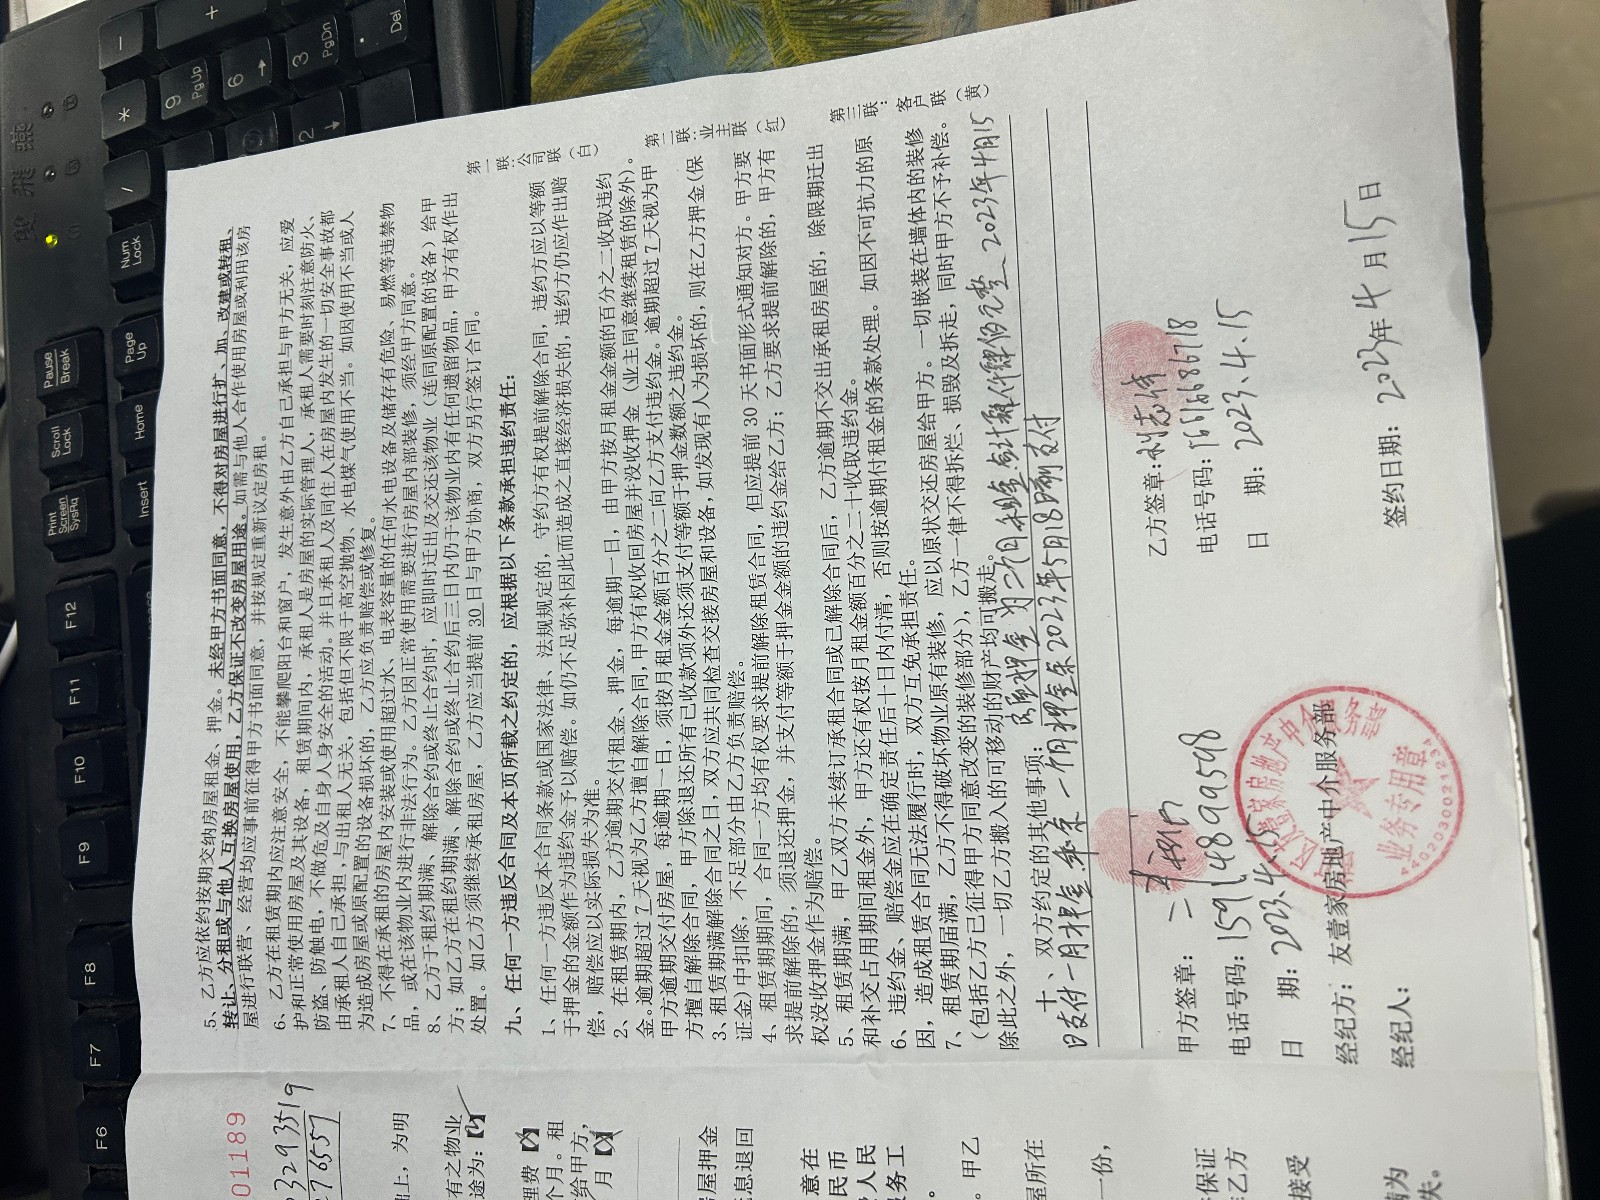 5、乙方应依约按期交纳房屋租金、押金。未经甲方书面同意，不得对房屋进行扩、加、改建或转租、
转让、分租或与他人互换房屋使用，乙方保证不改变房屋用途。如需与他人合作使用房屋或利用该房
屋进行联营、经营均应事前征得甲方书面同意，并按规定重新议定房租。
6、乙方在租赁期内应注意安全，不能攀爬阳台和窗户，发生意外由乙方自己承担与甲方无关，应爱
护和正常使用房屋及其设备，租赁期间内，承租人是房屋的实际管理人，承租人需要时刻注意防火、
防盗、防触电，不做危及自身人身安全的活动。并且承租人及同住人在房屋内发生的一切安全事故都
由承租人自己承担，与出租人无关，包括但不限于高空抛物、水电煤气使用不当。如因使用不当或人
为造成房屋或原配置的设备损坏的，乙方应负责赔偿或修复。
7、不得在承租的房屋内安装或使用超过水、电表容量的任何水电设备及储存有危险，易燃等违禁物
品，或在该物业内进行非法行为。乙方因正常使用需要进行房屋内部装修，须经甲方同意。
8、乙方于租约期满、解除合约或终止合约时，应即时迁出及交还该物业（连同原配置的设备）给甲
方；如乙方在租约期满、解除合约或终止合约后三日内仍于该物业内有任何遗留物品，甲方有权作出
处置。如乙方须继续承租房屋，乙方应当提前30日与甲方协商，双方另行签订合同。
九、任何一方违反合同及本页所载之约定的，应根据以下条款承担违约责任：
1、任何一方违反本合同条款或国家法律、法规规定的，守约方有权提前解除合同，违约方应以等额
于押金的金额作为违约金予以赔偿。如仍不足弥补因此而造成之直接经济损失的，违约方仍应作出赔
偿，赔偿应以实际损失为准。
2、在租赁期内，乙方逾期交付租金、押金，每逾期一日，由甲方按月租金金额的百分之二收取违约
金。逾期超过7天视为乙方擅自解除合同，甲方有权收回房屋并没收押金（业主同意继续租赁的除外）。
甲方逾期交付房屋，每逾期一日，须按月租金金额百分之二向乙方支付违约金。逾期超过7天视为甲
方擅自解除合同，甲方除退还所有已收款项外还须支付等额于押金数额之违约金。
3、租赁期满解除合同之日，双方应共同检查交接房屋和设备，如发现有人为损坏的，则在乙方押金(保
证金)中扣除，不足部分由乙方负责赔偿。
4、租赁期期间，合同一方均有权要求提前解除租赁合同，但应提前30天书面形式通知对方。甲方要
求提前解除的，须退还押金，并支付等额于押金金额的违约金给乙方；乙方要求提前解除的，甲方有
权没收押金作为赔偿。
5、租赁期满，甲乙双方未续订承租合同或已解除合同后，乙方逾期不交出承租房屋的，除限期迁出
和补交占用期间租金外，甲方还有权按月租金额百分之二十收取违约金。
6、违约金、赔偿金应在确定责任后十日内付清，否则按逾期付租金的条款处理。如因不可抗力的原
因，造成租赁合同无法履行时，双方互免承担责任。
7、租赁期届满，乙方不得破坏物业原有装修，应以原状交还房屋给甲方。一切嵌装在墙体内的装修
（包括乙方已征得甲方同意改变的装修部分），乙方一律不得拆烂、损毁及拆走，同时甲方不予补偿。
除此之外，一切乙方搬入的可移动的财产均可搬走。
十、双方约定的其他事项：
为二个月租金
2023年4月15
日支付一月押金
2023年5月18
支付
甲方签章：
电话号码：15914899598
日 期：2023.4.15
乙方签章：
电话号码：16616686718
日 期：2023.4.15
经纪方：友壹家房地产中介服务部
经纪人：
签约日期：2023年4月15日
业务专用章
第一联：公司联（白）
第二联：业主联（红）
第三联：客户联（黄）
01189
上，为明
有之物业
途为：【
理费【
个月。租
给甲方，
月【
屋押金
息退回
意在
民币
人民
务工
。甲乙
屋所在
一份，
保证
乙方
接受
为
失。
Print Screen SysRq
Scroll Lock
Pause Break
Insert
Home
Page Up
Num Lock
/
*
-
+
9 PgUp
6
3 PgDn
2
. Del
F6
F7
F8
F9
F10
F11
F12